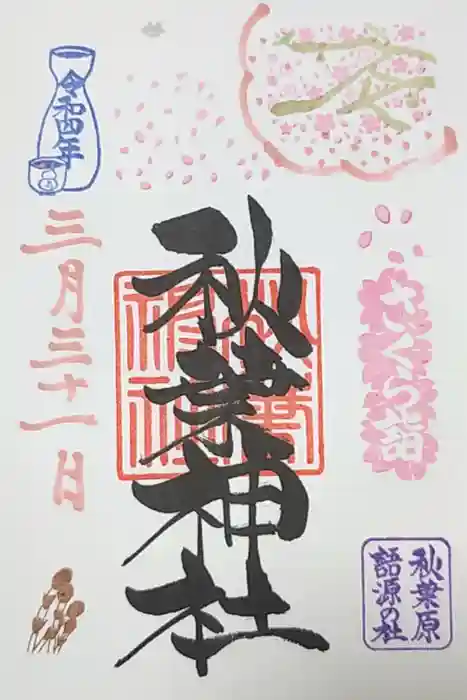 令和四年
三月三十一日
秋葉神社
さくら詣
秋葉原
語源の社